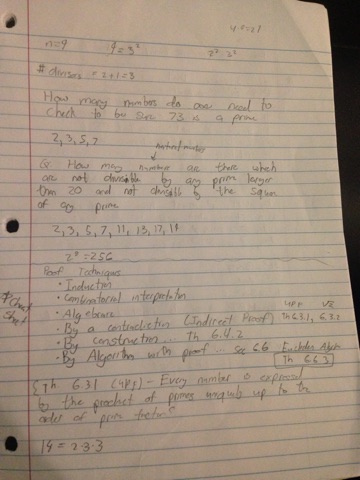 n=9 9=3² 2²·3²
# divisors = 2+1=3
How many numbers do one need to
check to be sure 73 is a prime
2, 3, 5, 7
natural number
Q: How many numbers are there which
are not divisible by any prime larger
than 20 and not divisible by the square
of any prime
2, 3, 5, 7, 11, 13, 17, 19
2⁸=256
Proof Techniques
• Induction
• Combinatorial interpretation
• Algebraic
UPF √2
• By a contradiction (Indirect Proof) Th 6.3.1, 6.3.2
• By construction ... Th 6.4.2
• By Algorithm with proof ... sec 6.6 Euclidean
Th 6.6.3
*Cheat
Sheet
Th 6.3.1 (UPF) - Every number is expressed
by the product of primes uniquely up to the
order of prime factors
18 = 2·3·3